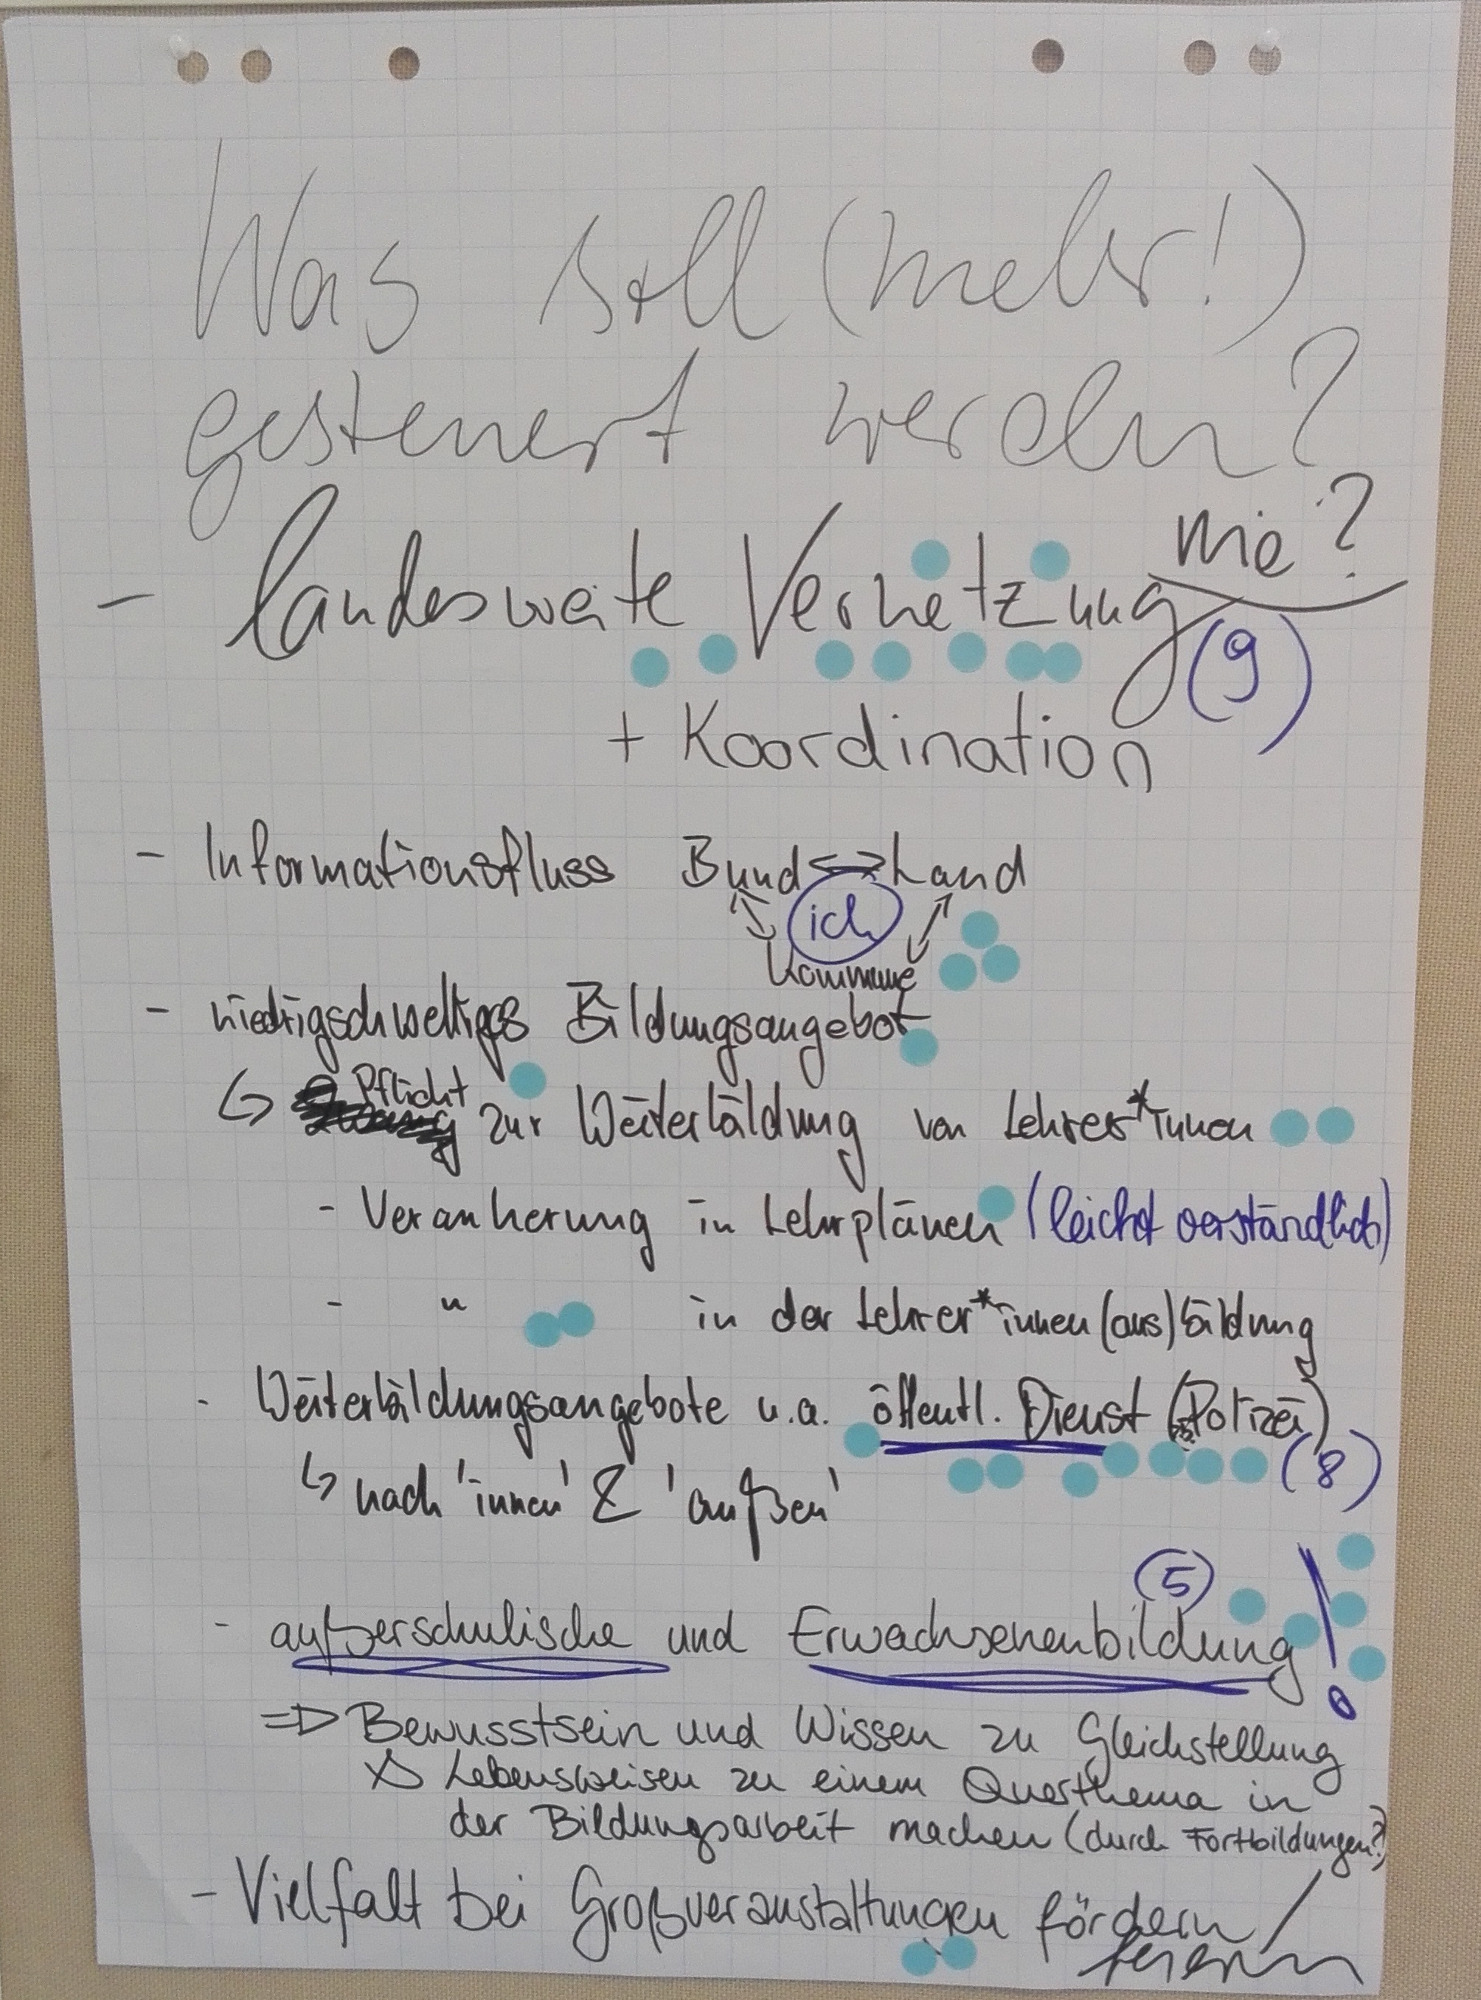 Was soll (mehr!)
gesteuert werden?
- landesweite Vernetzung wie?
(9)
+ Koordination
- Informationsfluss Bund <-> Land
ich
Kommune
- niedrigschwelliges Bildungsangebot
↳ Pflicht zur Weiterbildung von Lehrer*innen
- Verankerung in Lehrplänen (leicht verständlich)
- " in der Lehrer*innen(aus)bildung
- Weiterbildungsangebote u.a. öffentl. Dienst (Polizei)
(8)
↳ nach 'innen' & 'außen'
(5)
- außerschulische und Erwachsenenbildung !
=> Bewusstsein und Wissen zu Gleichstellung
& Lebensweisen zu einem Querthema in
der Bildungsarbeit machen (durch Fortbildungen?)
- Vielfalt bei Großveranstaltungen fördern/
feiern